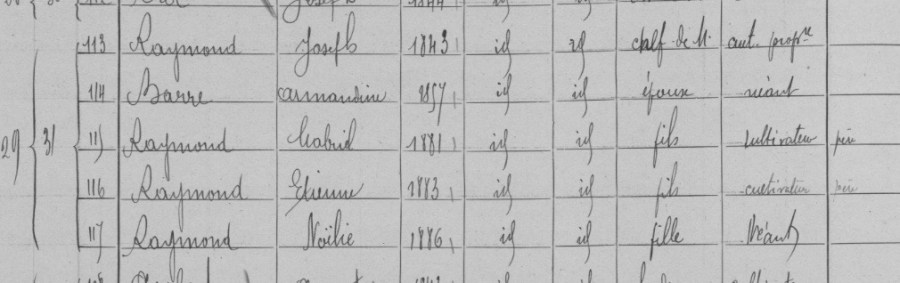 113 Raymond Joseph 1843 id id chef de M. cult. propre
114 Barre Armandine 1857 id id épouse néant
29 31 115 Raymond Gabriel 1881 id id fils cultivateur père
116 Raymond Etienne 1883 id id fils cultivateur père
117 Raymond Noëlie 1886 id id fille Néant